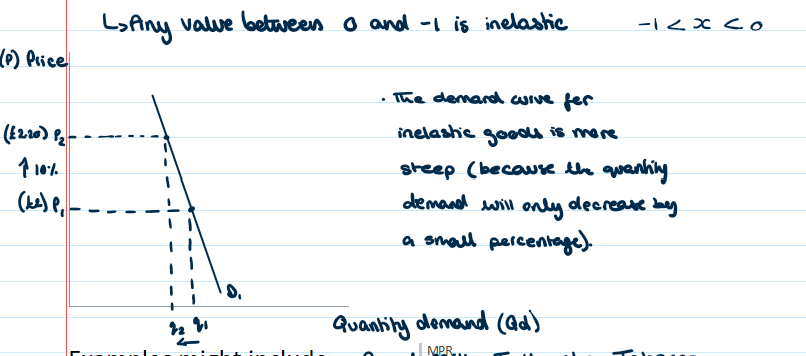 ↳Any value between 0 and -1 is inelastic -1 < x < 0
(P) Price
· The demand curve for
(£2.20) P₂ inelastic goods is more
↑ 10% steep (because the quantity
(£2) P₁ demand will only decrease by
a small percentage).
D₁
q₂ q₁ Quantity demand (Qd)
←
MPR
Examples might include